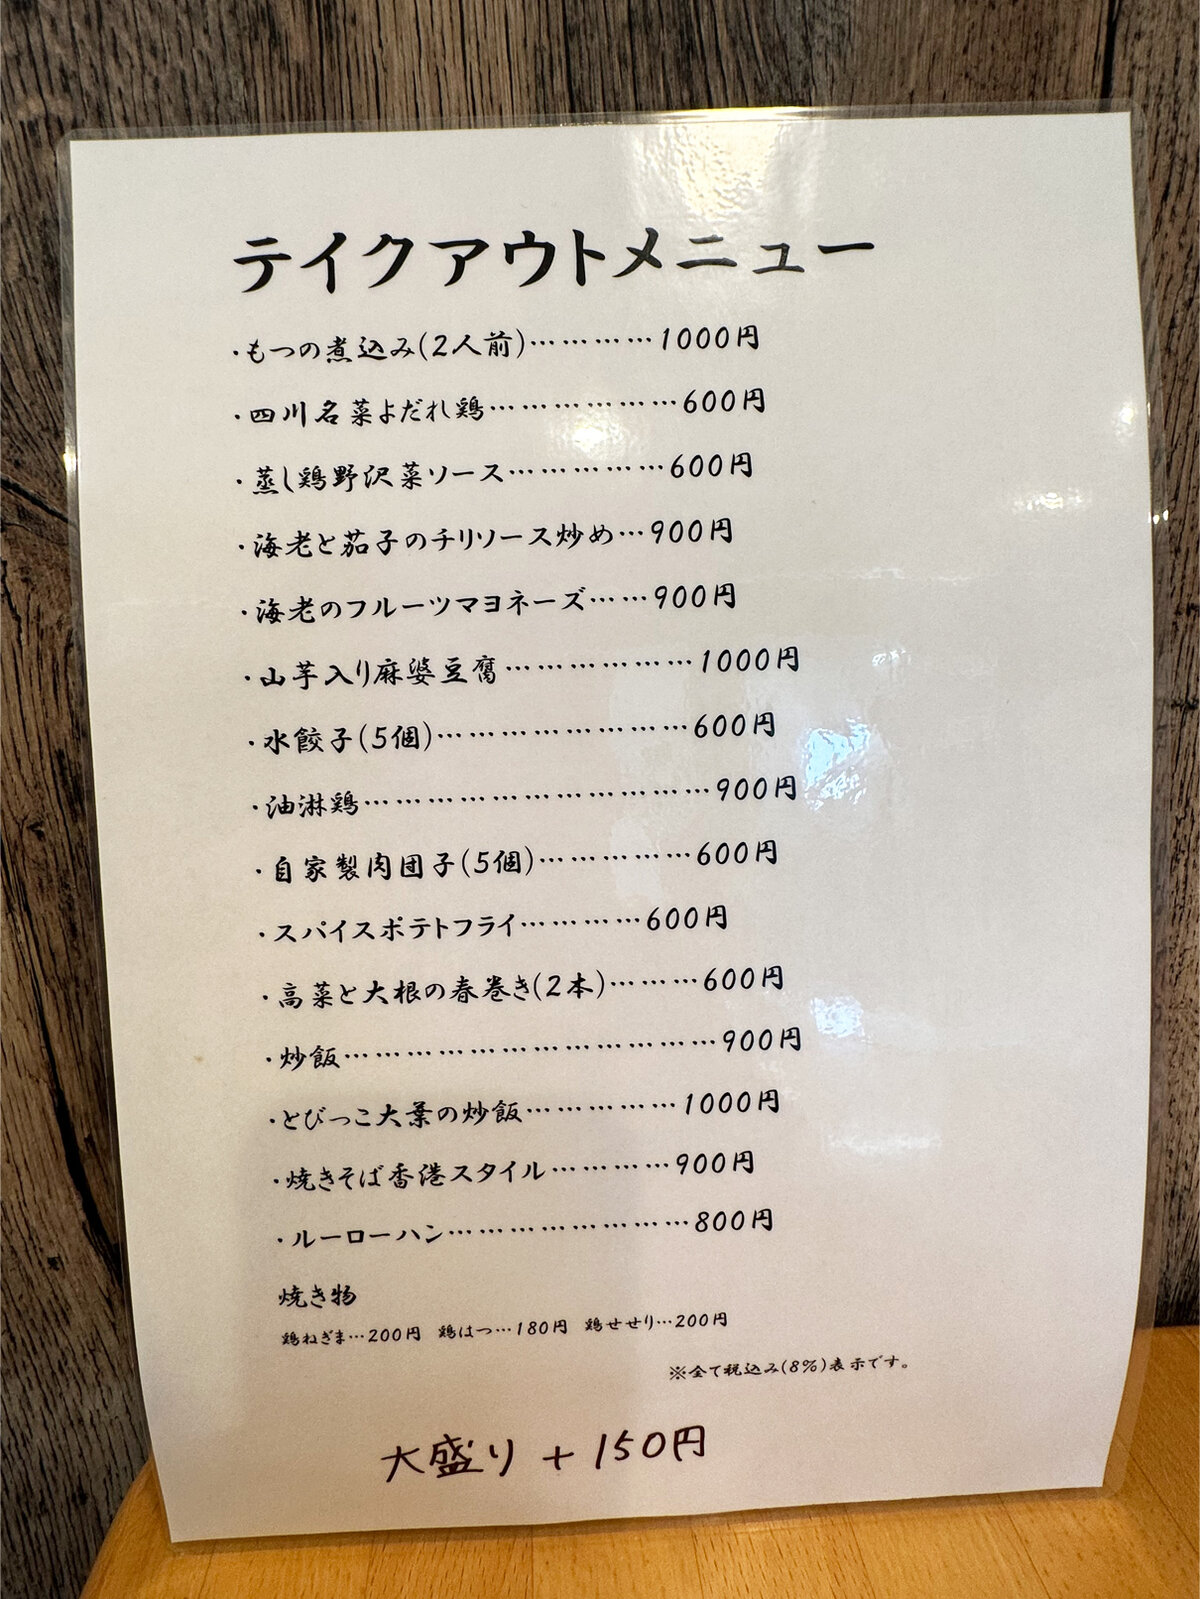 テイクアウトメニュー
・もつの煮込み(2人前)…………1000円
・四川名菜よだれ鶏………………600円
・蒸し鶏野沢菜ソース……………600円
・海老と茄子のチリソース炒め…900円
・海老のフルーツマヨネーズ……900円
・山芋入り麻婆豆腐………………1000円
・水餃子(5個)……………………600円
・油淋鶏……………………………900円
・自家製肉団子(5個)……………600円
・スパイスポテトフライ…………600円
・高菜と大根の春巻き(2本)………600円
・炒飯………………………………900円
・とびっこ大葉の炒飯……………1000円
・焼きそば香港スタイル…………900円
・ルーローハン……………………800円
焼き物
鶏ねぎま…200円 鶏はつ…180円 鶏せせり…200円
※全て税込み(8%)表示です。
大盛り + 150円